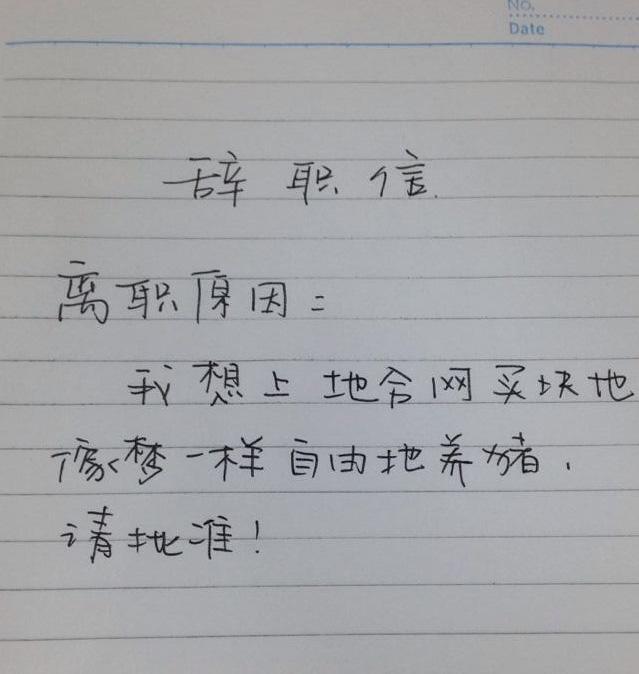 No.
Date
辞职信
离职原因：
我想上地合网买块地
像梦一样自由地养猪，
请批准！